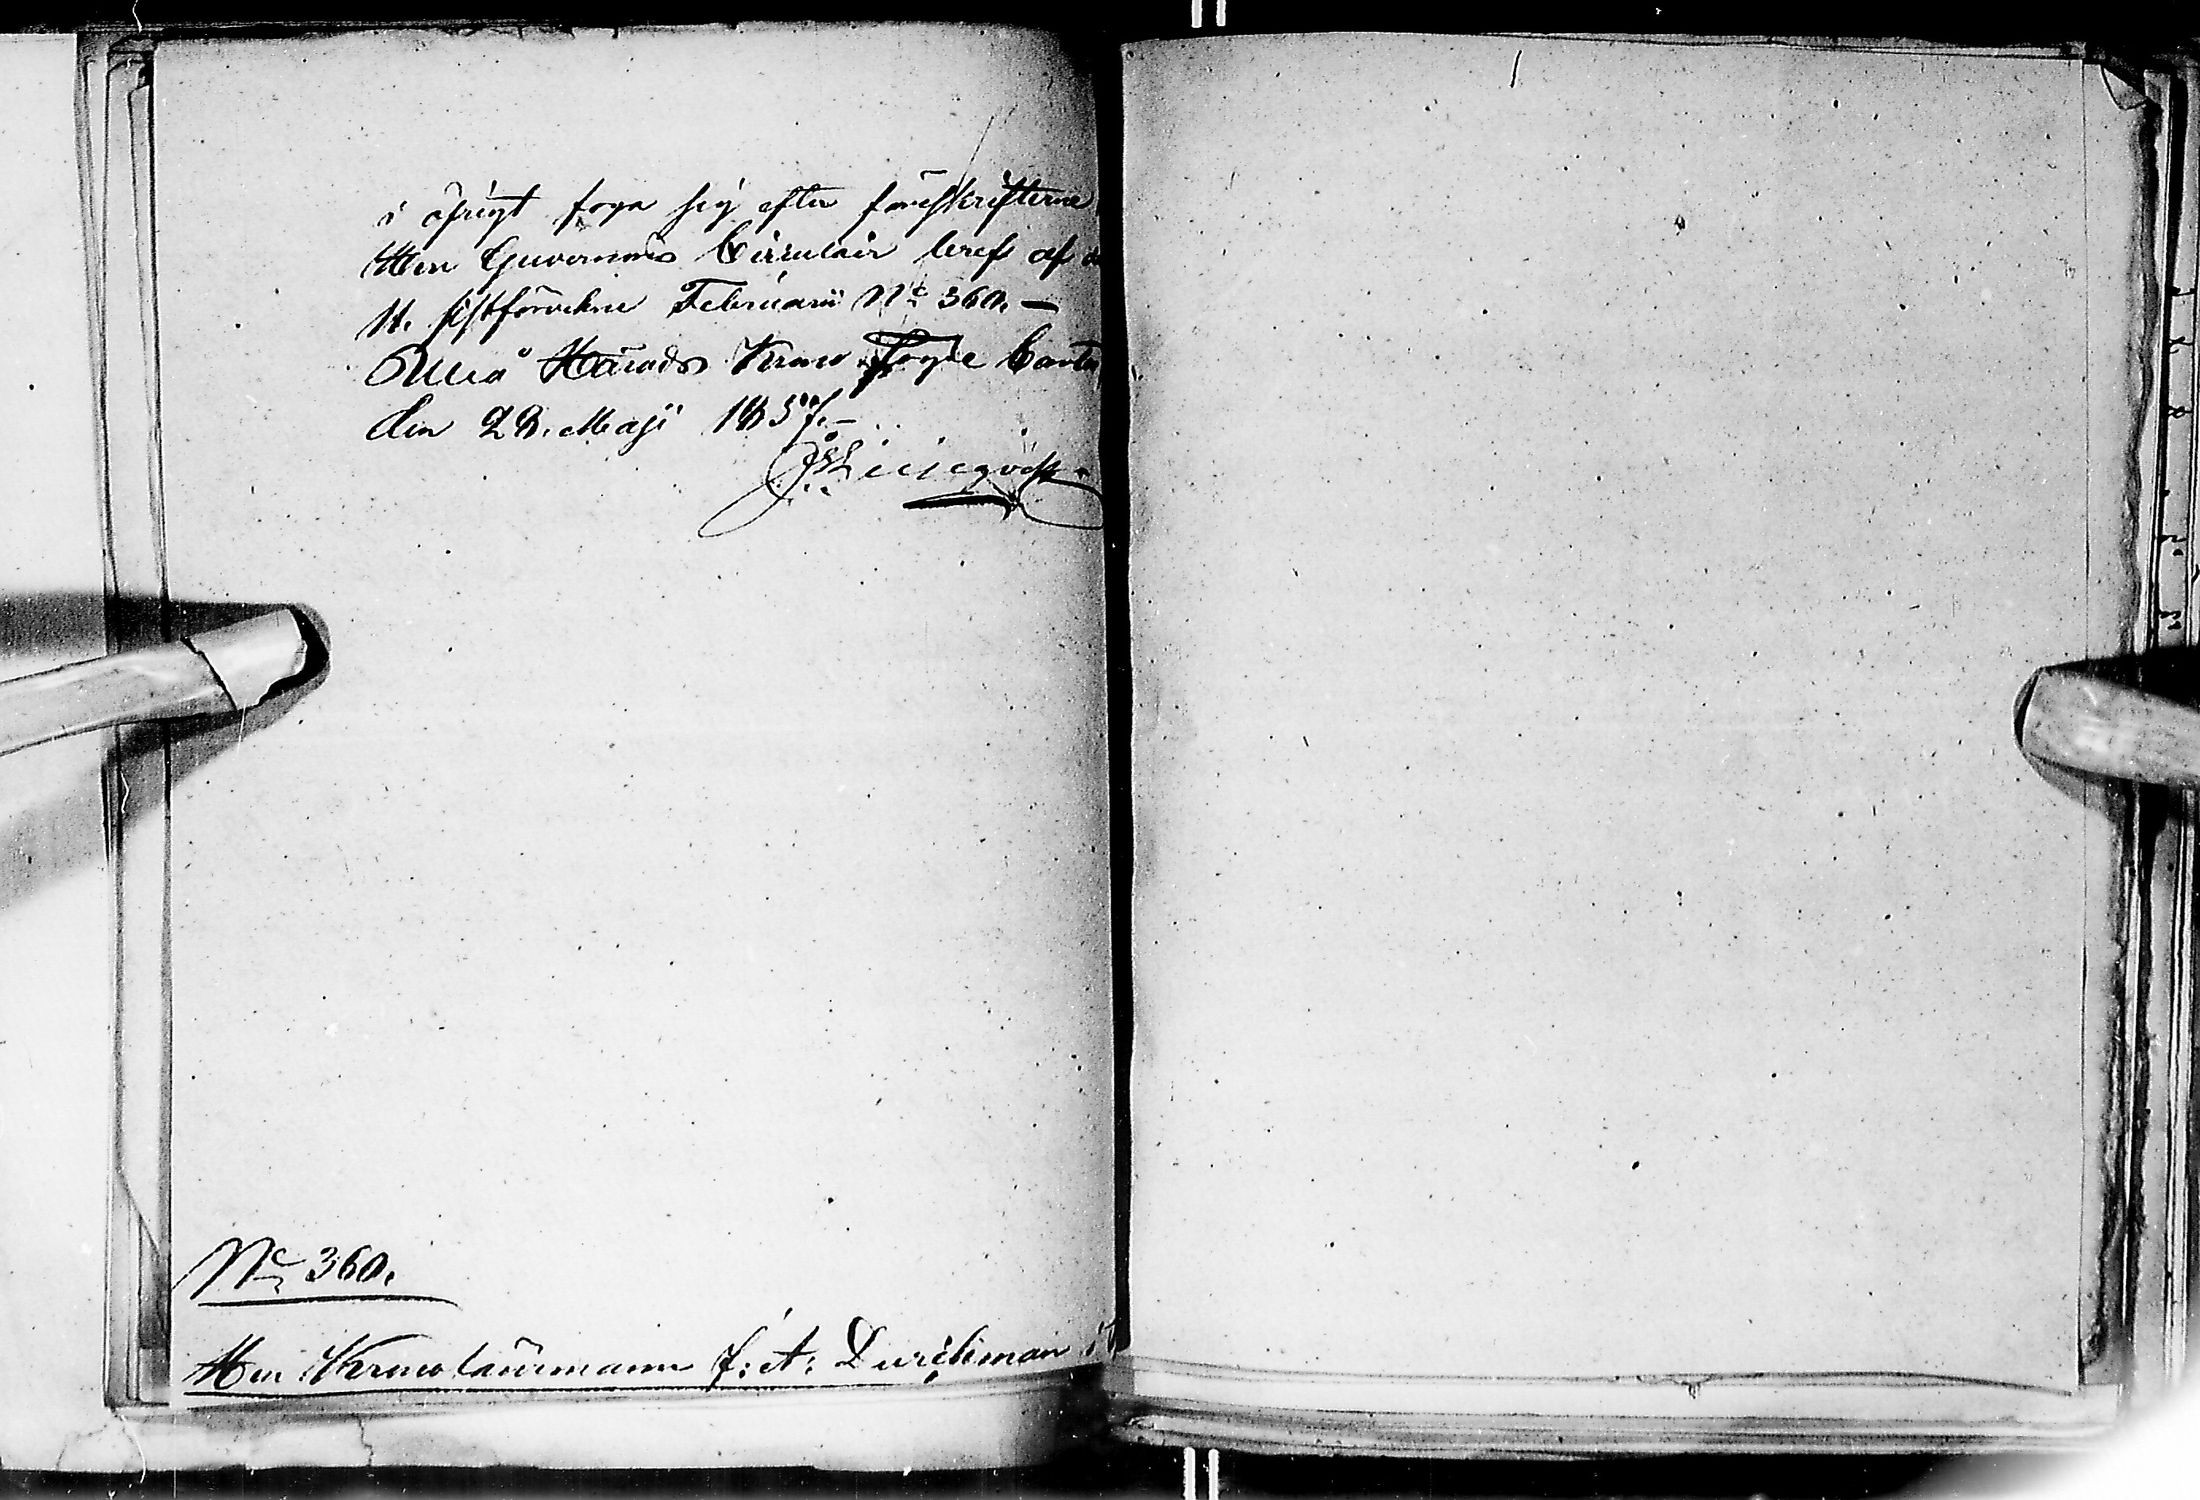 i öfrigt foga sig efter föreskrifterne
Herr Guvernörens Circulair bref af
11. sistförvekne Februarii No 360. —
Ulleå Härads Krono Fogde Conto
den 28. Maji 1857. —
Liljeqvist
No 360.
Herr Kronolänsmann f: A: Durchman